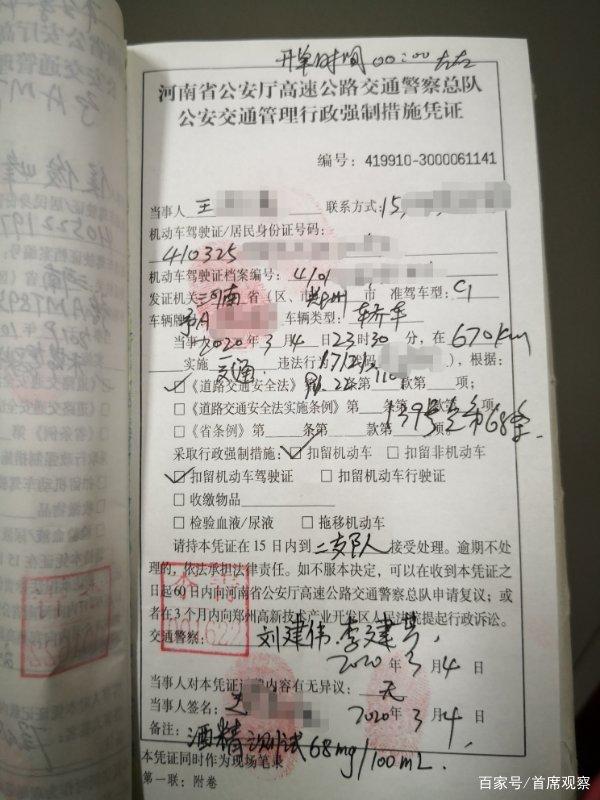 开单时间00:00左右
河南省公安厅高速公路交通警察总队
公安交通管理行政强制措施凭证
编号：419910-3000061141
当事人 王 联系方式：15
机动车驾驶证/居民身份证号码：
410325
机动车驾驶证档案编号：4101
发证机关：河南 省（区、市）郑州 市 准驾车型：C1
车辆牌号 豫A 车辆类型：轿车
当事人 2020年3月4日23时30分，在670km
实施 违法行为（代码 ），根据：
☑《道路交通安全法》第 条第 款第 项；
□《道路交通安全法实施条例》第 条第 款第 项；
□《省条例》第 条第 款第 项；
采取行政强制措施：☑扣留机动车 □扣留非机动车
☑扣留机动车驾驶证 □扣留机动车行驶证
□收缴物品
□检验血液/尿液 □拖移机动车
请持本凭证在15日内到 二支队 接受处理。逾期不处
理的，依法承担法律责任。如不服本决定，可以在收到本凭证之
日起60日内向河南省公安厅高速公路交通警察总队申请复议；或
者在3个月内向郑州高新技术产业开发区人民法院提起行政诉讼。
交通警察：刘建伟
2020年3月4日
当事人对本凭证记载内容有无异议：无
当事人签名： 2020年3月4日
备注：酒精测试68mg/100mL.
本凭证同时作为现场笔录
第一联：附卷
百家号/首席观察